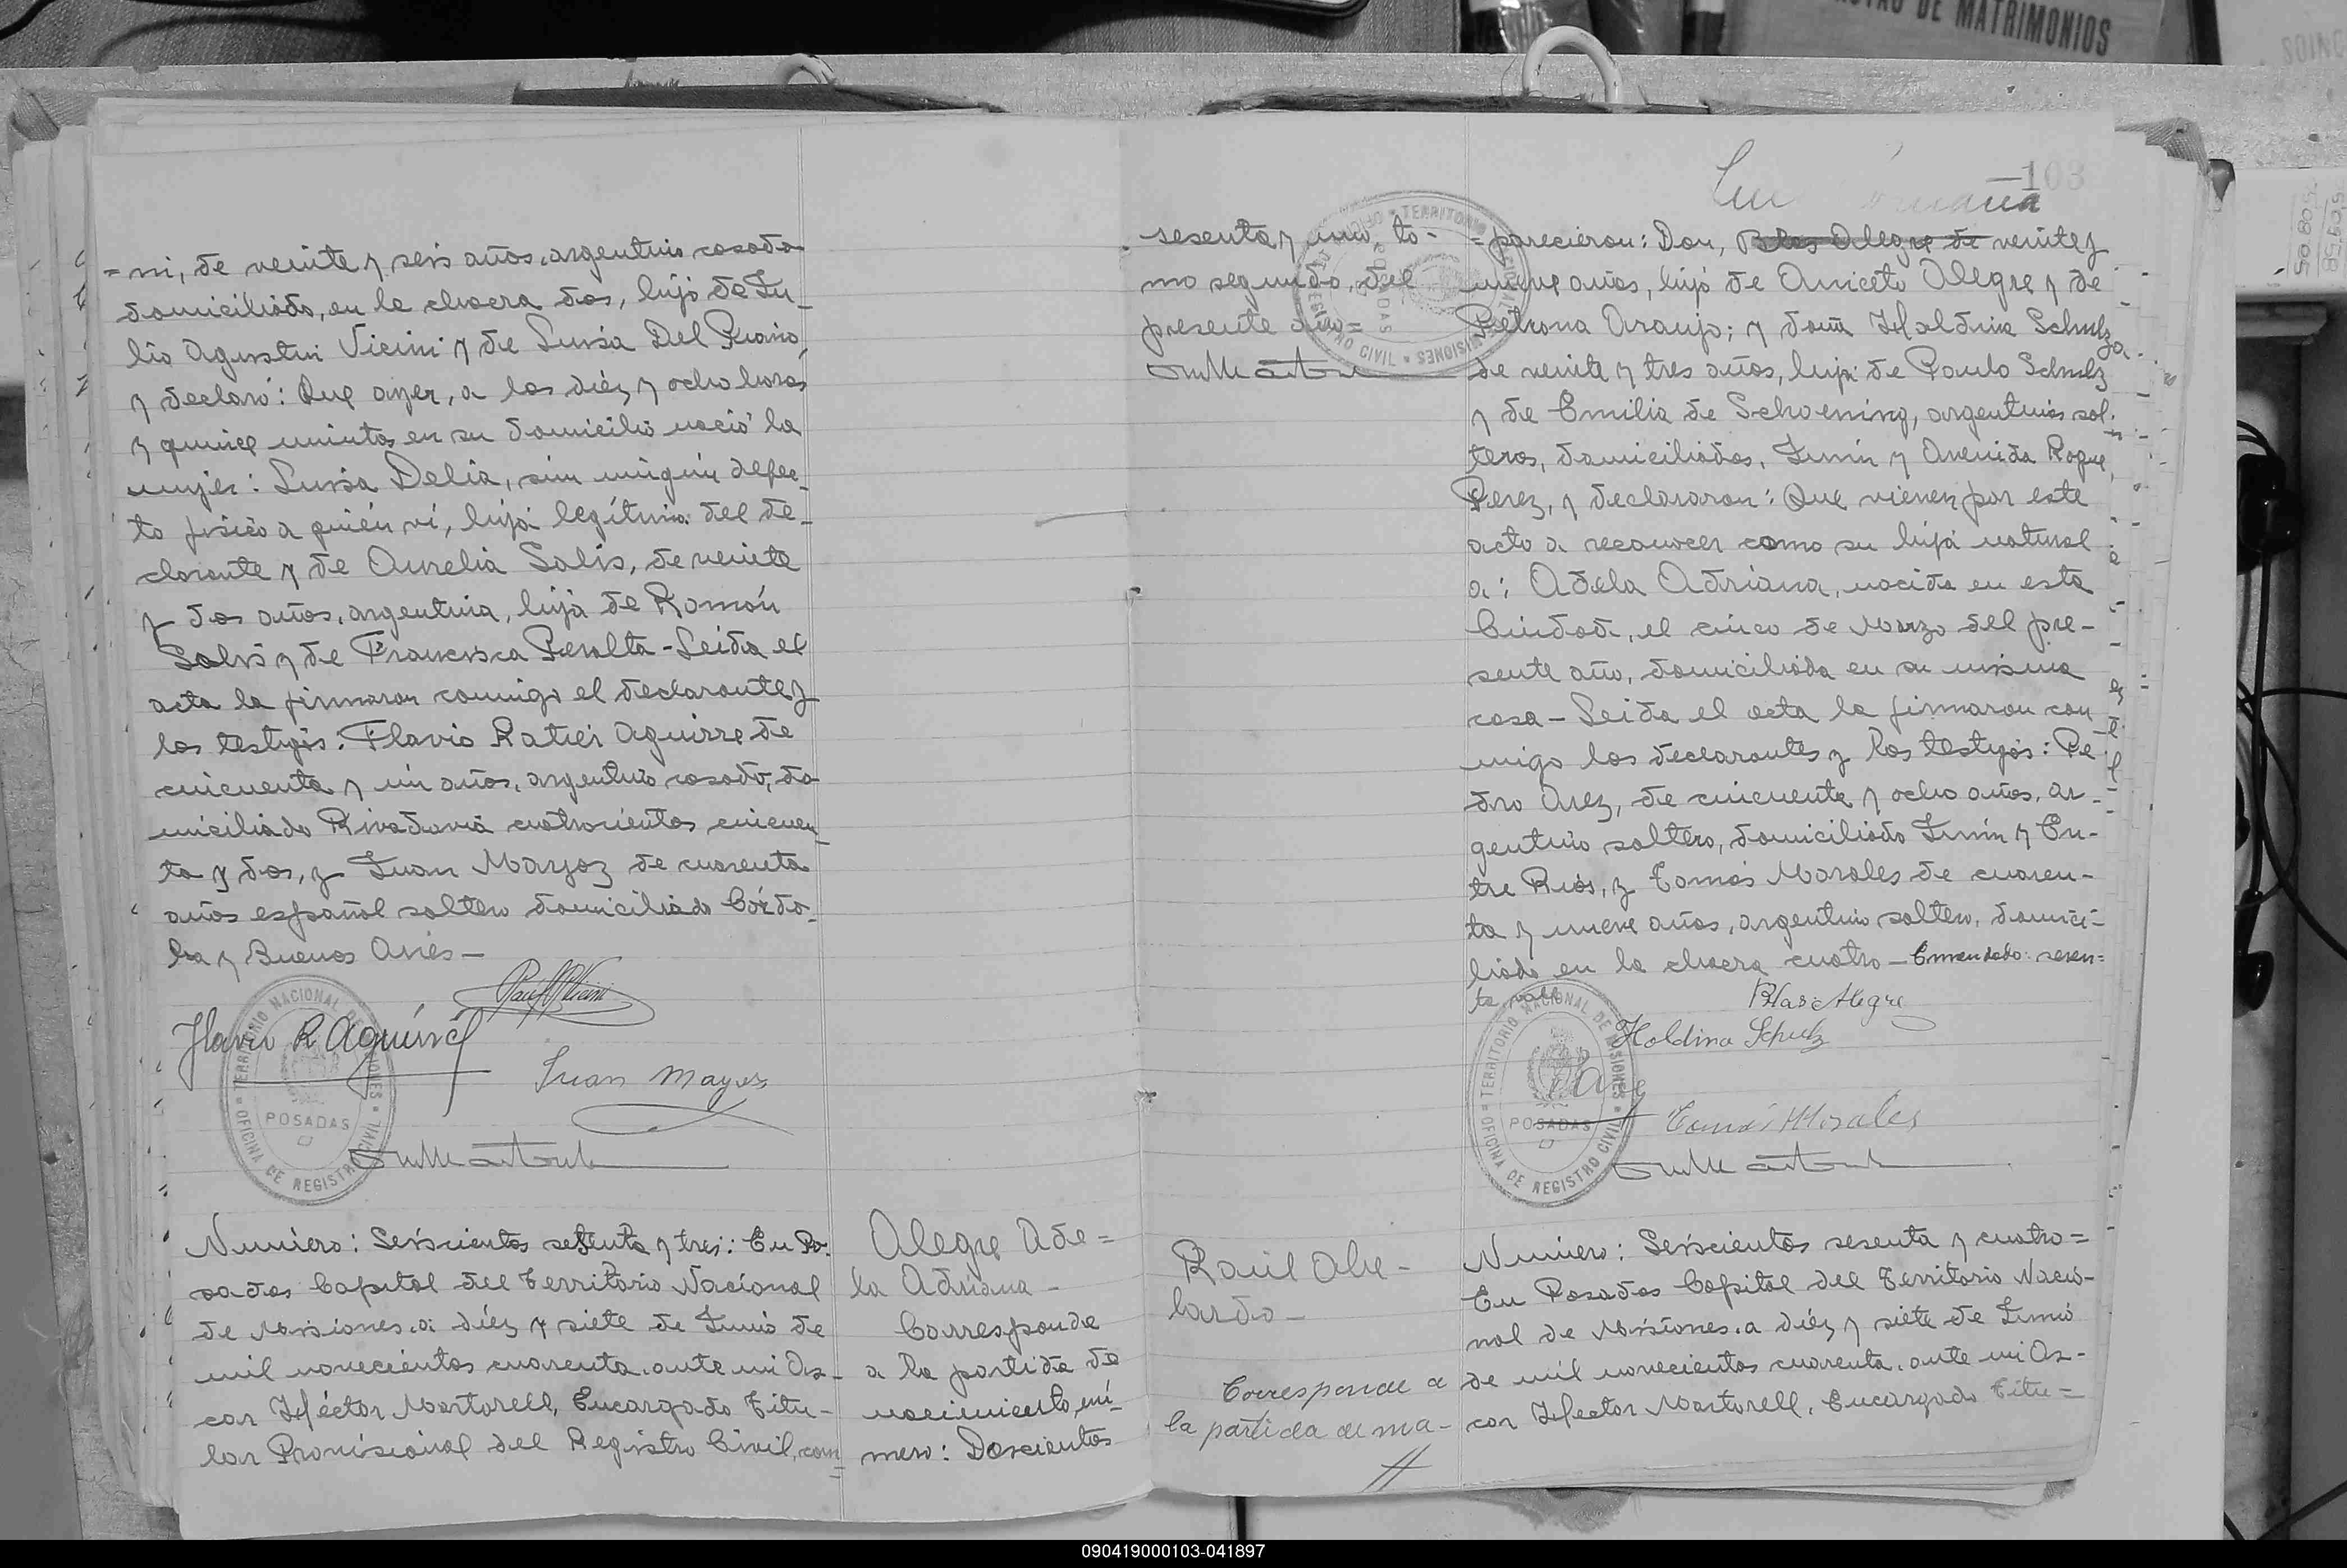 DE MATRIMONIOS
103
= ni, de veinte y seis años, argentino casado
domiciliado, en la chacra dos, hijo de Ju-
lio Agustin Vicini y de Luisa Del Piano,
y declaró: Que ayer, a las diéz y ocho horas
y quince minutos en su domicilio nació la
mujer: Luisa Delia, sin ningún defec-
to fisico a quién ví, hija legítima del de-
clarante y de Aurelia Solis, de veinte
y dos años, argentina, hija de Ramón
Solis y de Francisca Peralta - Leida el
acta la firmaron conmigo el declarante y
los testigos: Flavio Ratier Aguirre de
cincuenta y un años, argentino casado, do-
miciliado Rivadavia cuatrocientos cincuen-
ta y dos, y Juan Mayoz de cuarenta
años español soltero domiciliado Córdo-
ba y Buenos Aires -
Flavio R Aguirre
Juan Mayoz
TERRITORIO NACIONAL DE MISIONES
POSADAS
OFICINA DE REGISTRO CIVIL
Numero: Seiscientos sesenta y tres: En Po-
sadas Capital del Territorio Nacional
de Misiones, a diéz y siete de Junio de
mil novecientos cuarenta, ante mi Os-
car Héctor Martorell, Encargado Titu-
lar Provisional del Registro Civil, com
=
Alegre Ade=
la Adriana -
Corresponde
a la partida de
nacimiento, nú-
mero: Doscientos
sesenta y uno, to-
mo segundo, del
presente año=
TERRITORIO NACIONAL DE MISIONES
POSADAS
OFICINA DE REGISTRO CIVIL
= parecieron: Don, Blas Alegre de veinte y
nueve años, hijo de Aniceto Alegre y de
Petrona Araujo; y doña Haldina Schulz
de veinte y tres años, hija de Paulo Schulz
y de Emilia de Schoening, argentinos sol-
teros, domiciliados, Junín y Avenida Roque
Perez, y declararon: Que vienen por este
acto a reconocer como su hija natural
a: Adela Adriana, nacida en esta
Ciudad, el cinco de Marzo del pre-
sente año, domiciliada en su misma
casa - Leida el acta la firmaron con
migo los declarantes y los testigos: Pe-
dro Arez, de cincuenta y ocho años, ar-
gentino soltero, domiciliado Junín y En-
tre Rios, y Tomás Morales de cuaren-
ta y nueve años, argentino soltero, domici-
liado en la chacra cuatro - Enmendado: sesen=
ta vale
Blas Alegre
Holdina Schulz
Tomás Morales
TERRITORIO NACIONAL DE MISIONES
POSADAS
OFICINA DE REGISTRO CIVIL
Raúl Abe-
lardo -
Corresponde a
la partida de na-
Número: Seiscientos sesenta y cuatro=
En Posadas Capital del Territorio Nacio-
nal de Misiones, a diéz y siete de Junio
de mil novecientos cuarenta, ante mi Os-
car Hector Martorell, Encargado Titu=
090419000103-041897